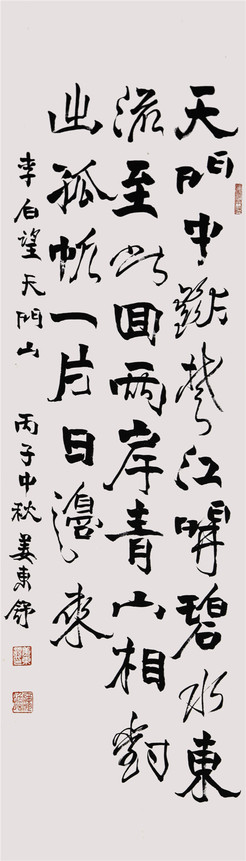 天門中斷楚江開碧水東
流至此回兩岸青山相對
出孤帆一片日邊來
李白望天門山 丙子中秋 姜東舒